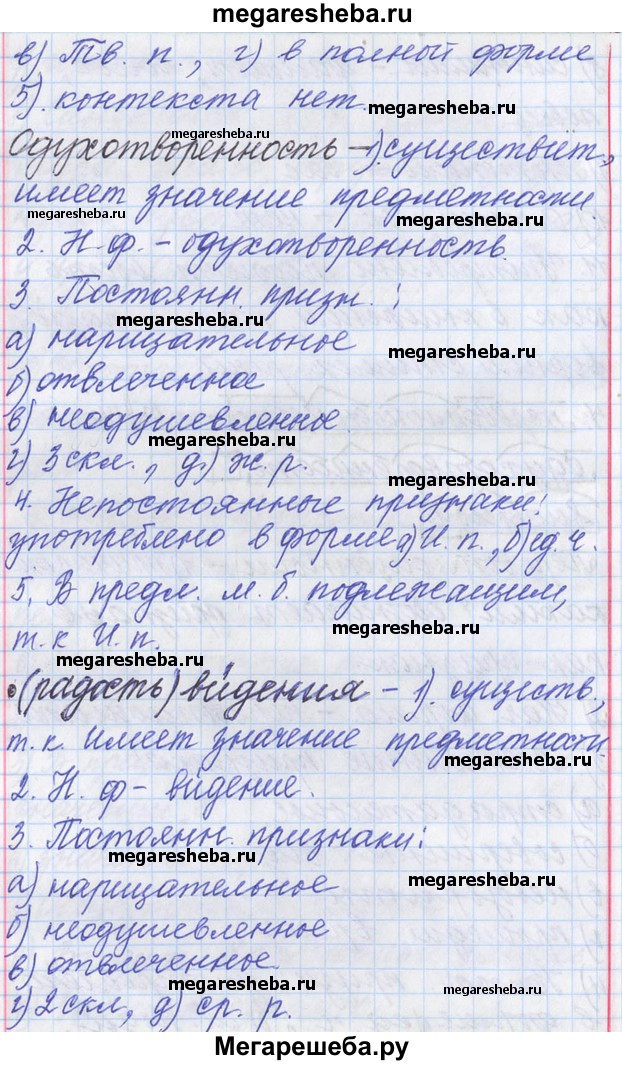 megaresheba.ru
в) Тв. п., г) в полной форме
5). контекста нет.
megaresheba.ru
megaresheba.ru
Одухотворенность – 1) существит.,
имеет значение предметности
megaresheba.ru
megaresheba.ru
2. Н.ф. – одухотворенность.
3. Постоянн. призн.:
megaresheba.ru
а) нарицательное
megaresheba.ru
б) отвлеченное
в) неодушевленное
megaresheba.ru
г) 3 скл., д) ж.р.
megaresheba.ru
4. Непостоянные признаки:
употреблено в форме а) И.п., б) ед.ч.
5. В предл. м.б. подлежащим,
т.к И.п.
megaresheba.ru
megaresheba.ru
(радость) ви́дения – 1). существ.,
т.к. имеет значение предметности
megaresheba.ru
2. Н. ф – ви́дение.
3. Постоянн. признаки:
megaresheba.ru
а) нарицательное
megaresheba.ru
б) неодушевленное
в) отвлеченное
megaresheba.ru
megaresheba.ru
г) 2 скл, д) ср. р.
Мегарешеба.ру